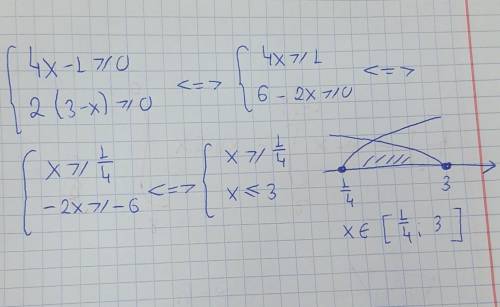 { 4x-1 ⩾ 0
2(3-x) ⩾ 0 <=>
{ 4x ⩾ 1
6-2x ⩾ 0 <=>
{ x ⩾ 1/4
-2x ⩾ -6 <=>
{ x ⩾ 1/4
x ⩽ 3
1/4 3
x ∈ [1/4; 3]